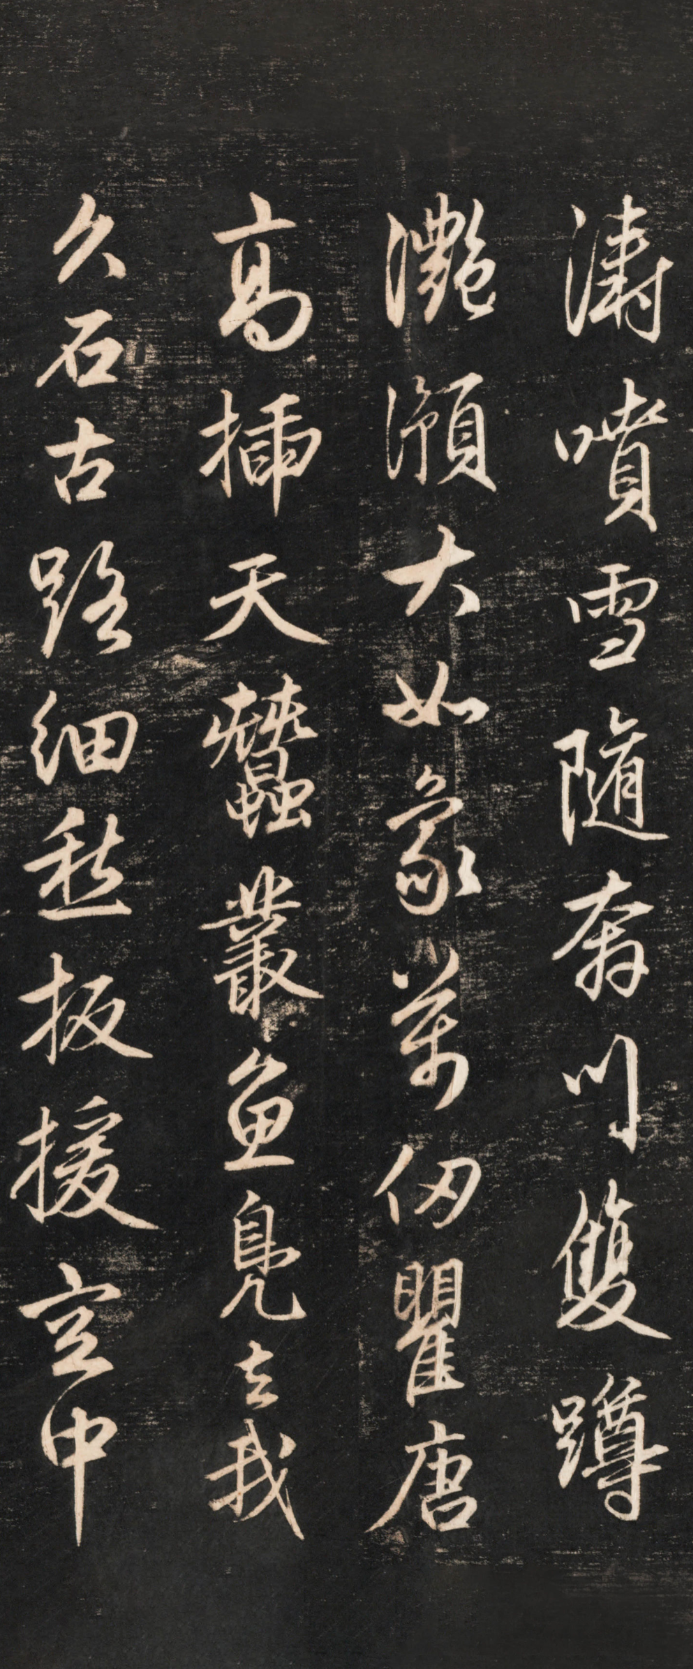 濤噴雪隨奔川雙蹲
灩澦大如象萬仞瞿唐
高插天蠶叢魚鳧去我
久石古路細愁扳援空中